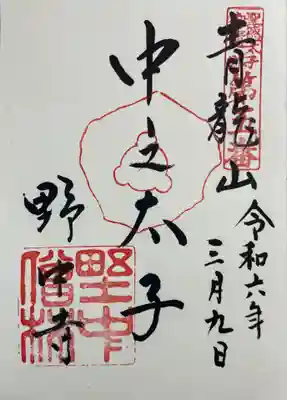 聖徳太子
青龍山
令和六年
三月九日
中之太子
野中寺